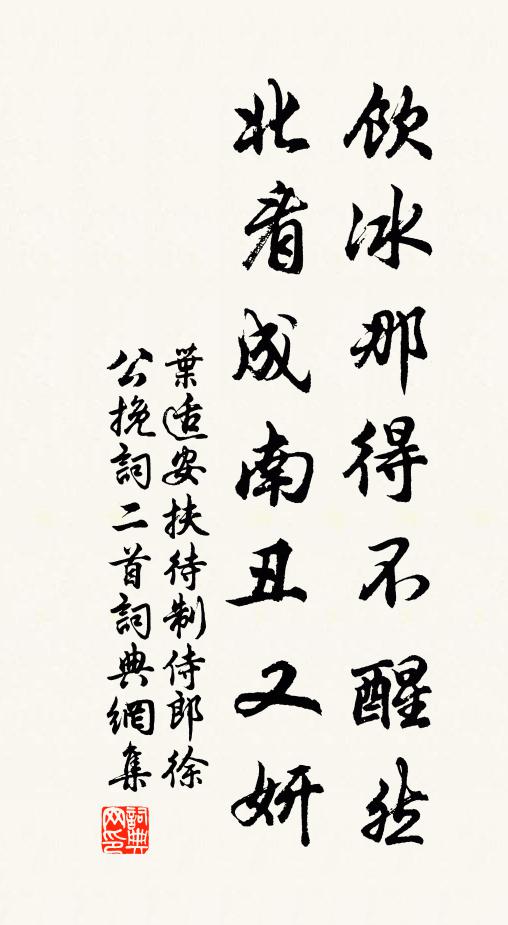 飲冰那得不醒然
北看成南丑又妍
葉适安扶待制侍郎徐
公挽詞二首詞典網集
詞典
网印